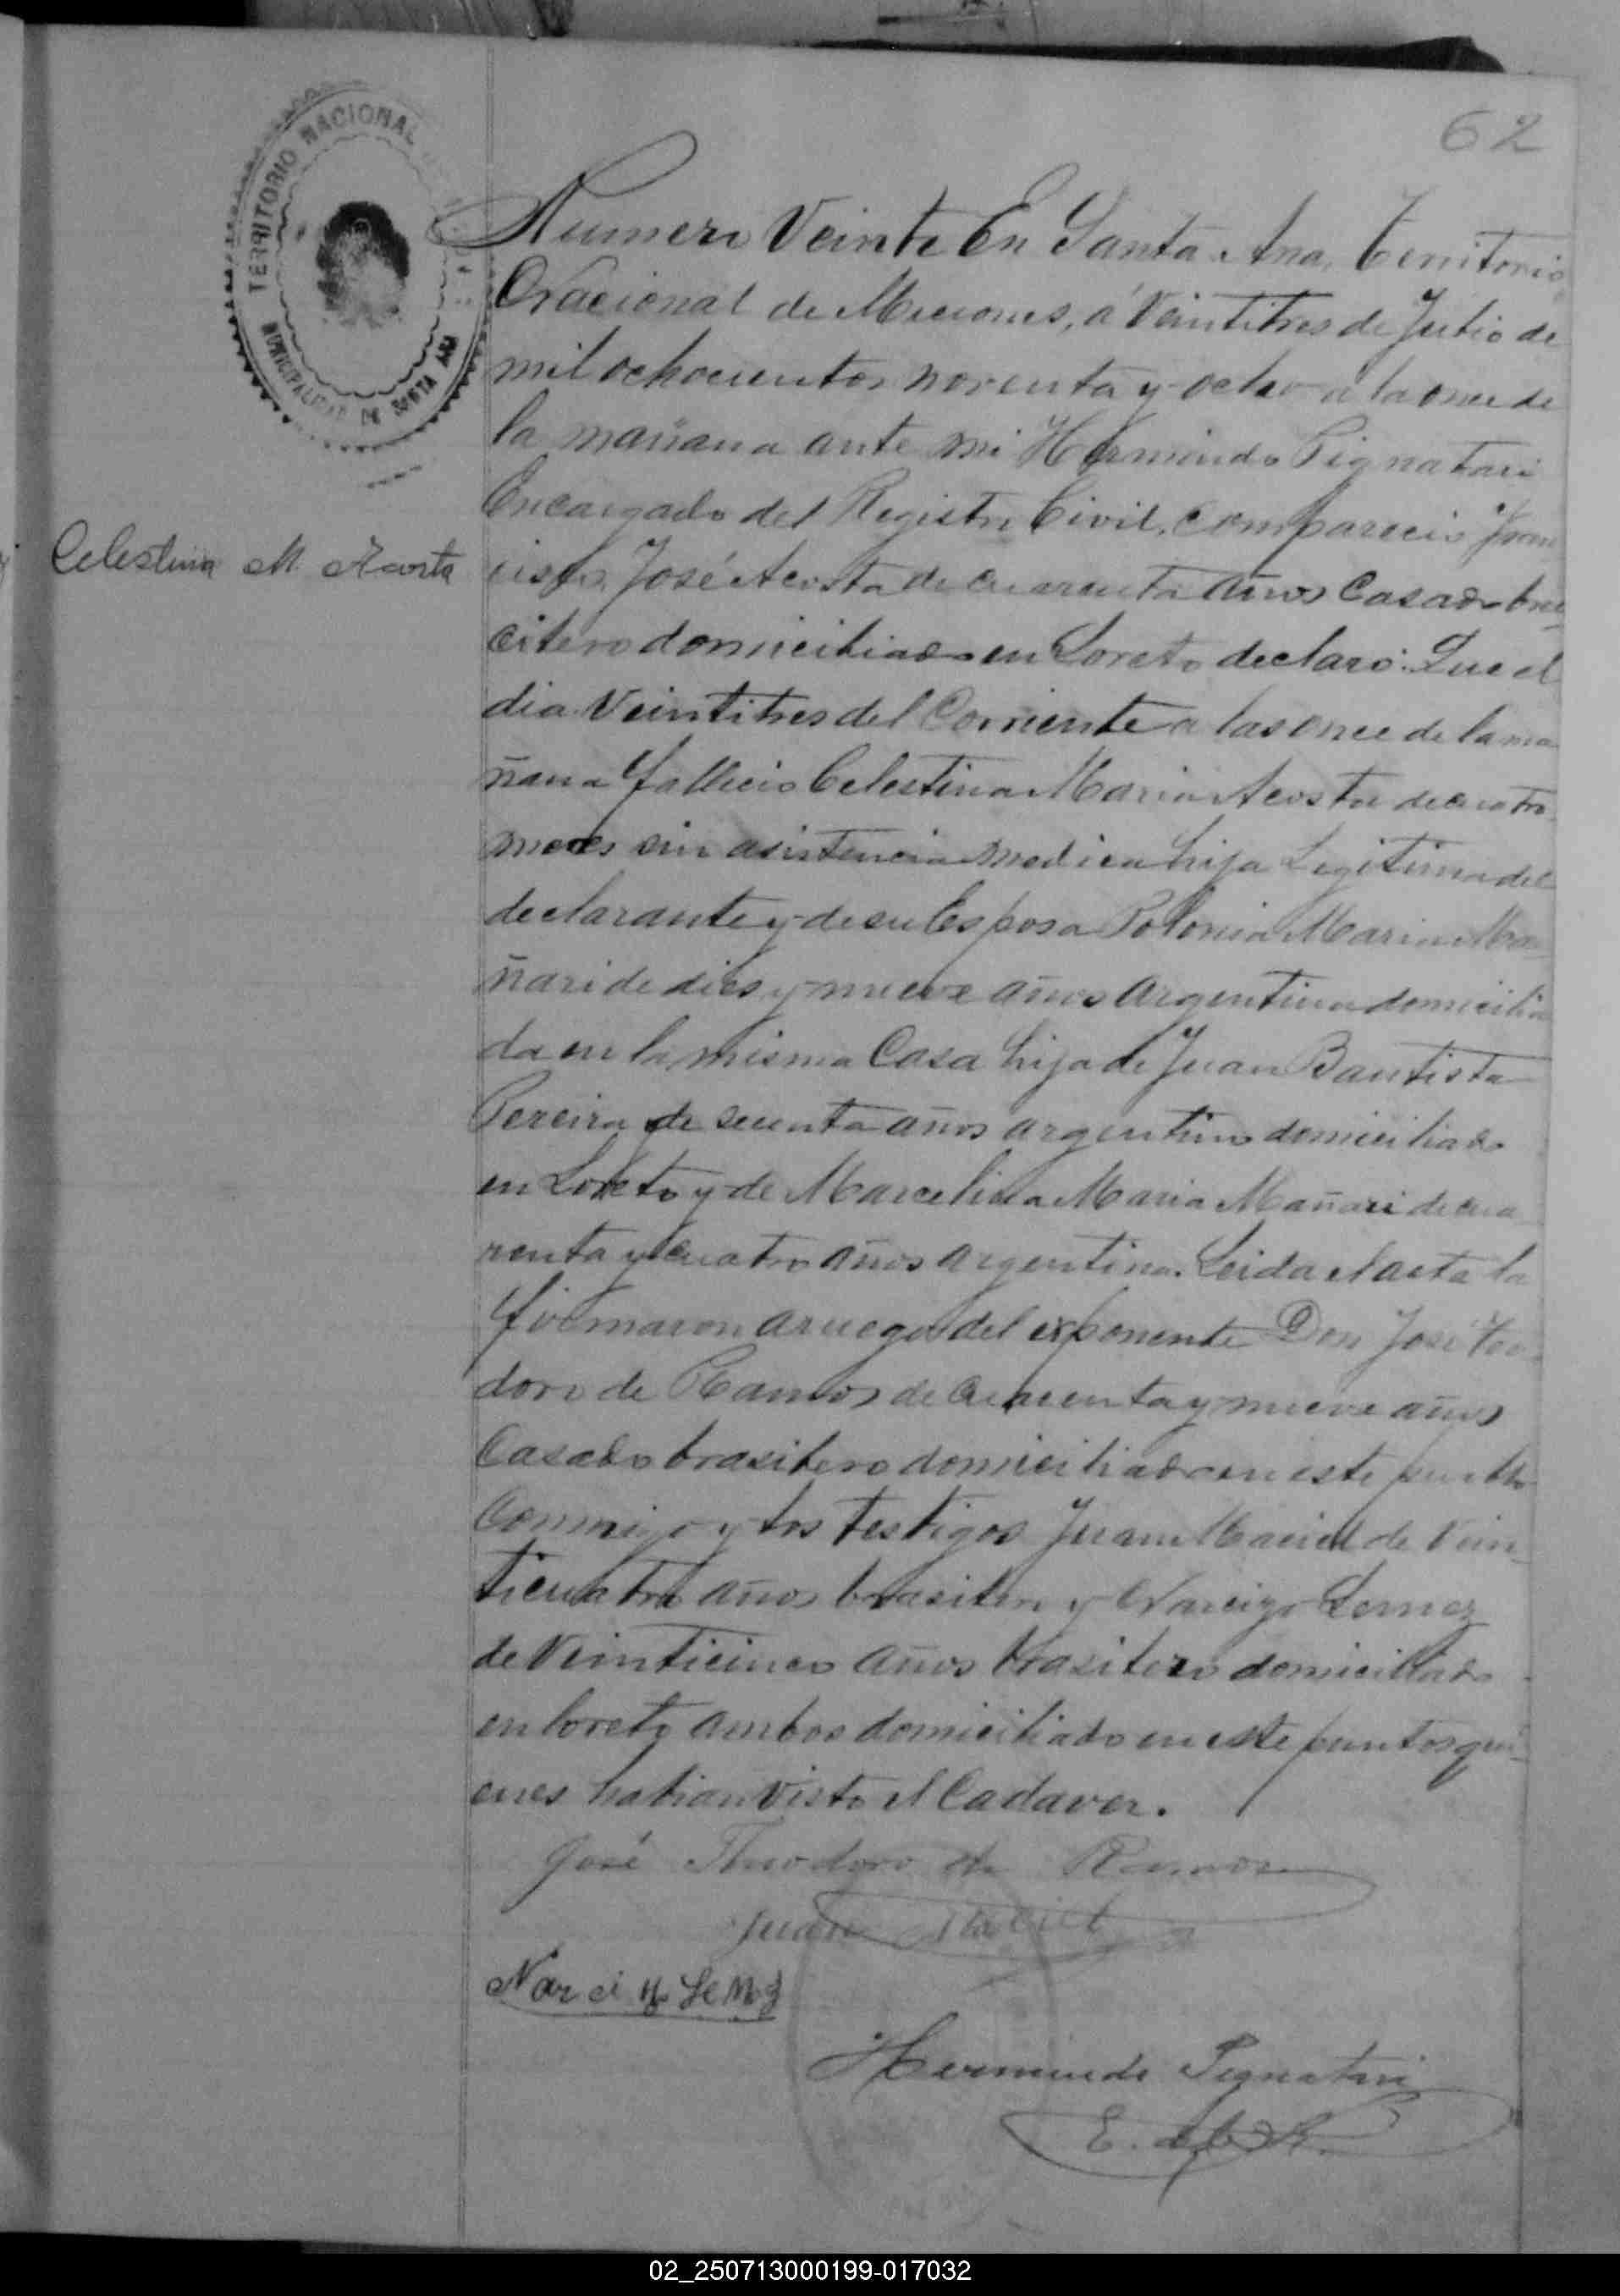 62
TERRITORIO NACIONAL
MUNICIPALIDAD DE SANTA ANA
Numero Veinte En Santa Ana, Territorio
Nacional de Misiones, á Veintitres de Julio de
mil ochocientos noventa y ocho a la once de
la mañana ante mi Hermindo Pignatari
Encargado del Registro Civil, comparecio Fran
Celestina M. Acosta
cisco José Acosta de cuarenta años Casado bra
cilero domiciliado en Loreto declaro: Que el
dia Veintitres del Corriente a las once de la ma
ñana fallecio Celestina Maria Acosta de cuatro
meses sin asistencia medica hija Legitima del
declarante y de su Esposa Polonia Maria Ma
ñari de dies y nueve años argentina domicilia
da en la misma Casa hija de Juan Bautista
Pereira de secenta años argentino domiciliado
en Loreto y de Marcelina Maria Mañari de cua
renta y cuatro años argentina. Leida el acta la
firmaron a ruego del exponente Don José Teo
doro de Ramos de cuarenta y nueve años
Casado brasilero domiciliado en este pueblo
Conmigo y los testigos Juan Maciel de Vein
ticuatro años brasilero y Narcizo Lemez
de Veinticinco años brasilero domiciliado
en loreto ambos domiciliado en este puntos qui
enes habian visto el Cadaver.
José Theodoro de Ramos
Juan Maciel
Narci Lemz
Hermindo Pignatari
E. del R.
02_250713000199-017032